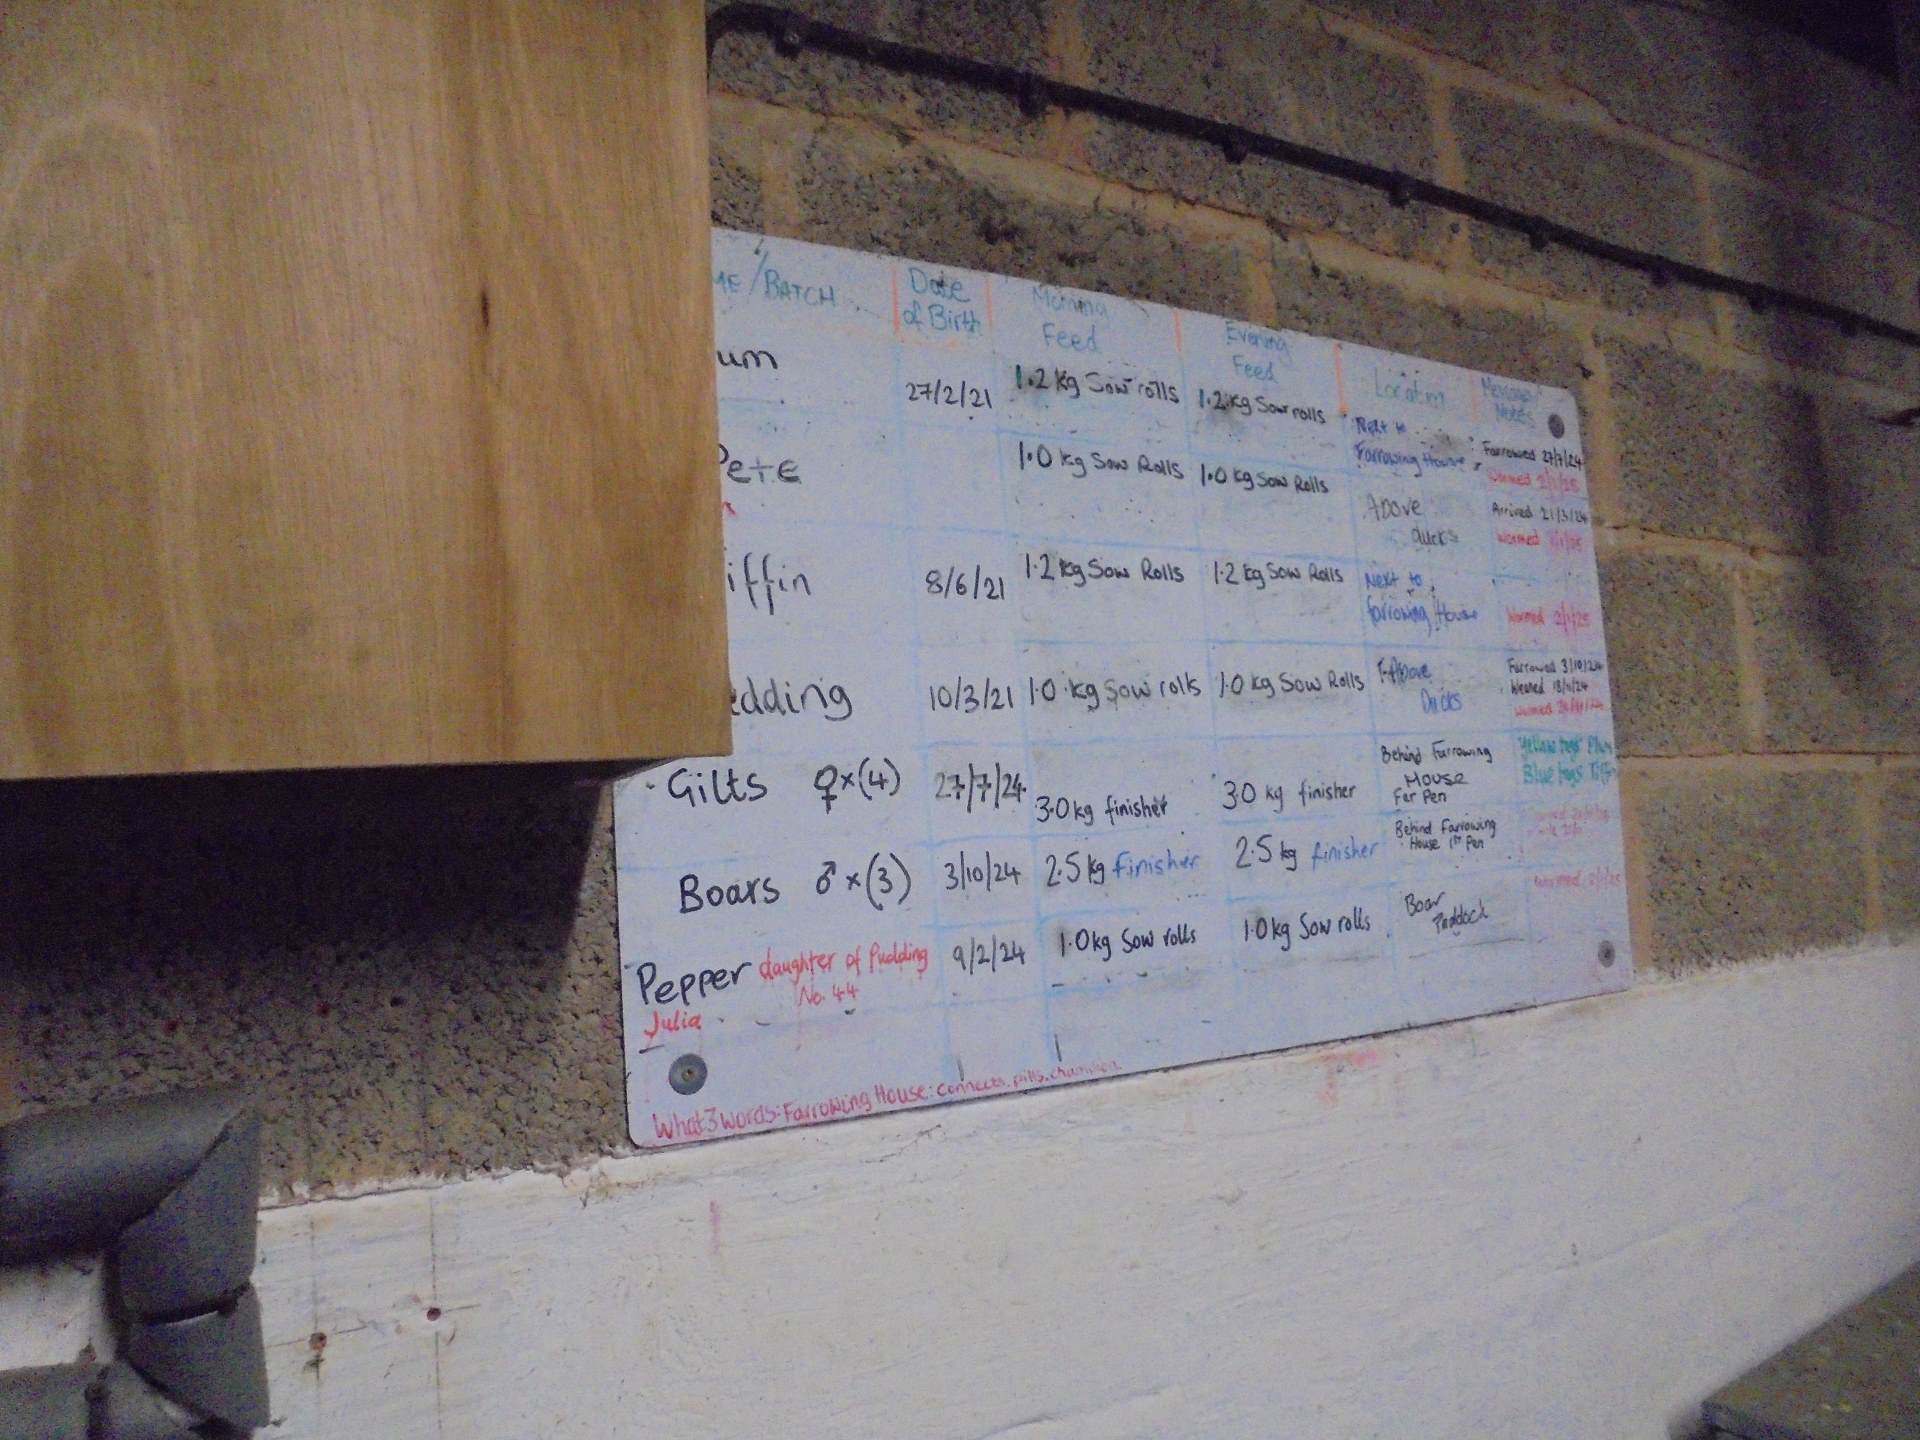 ME/BATCH
Date
of Birth
Morning
Feed
Evening
Feed
Location
um
27/2/21
1.2 kg Sow rolls
1.2 kg Sow rolls
Next to
Farrowing House
Farrowed 27/7/24
Wormed 2/1/25
Pete
1.0 kg Sow Rolls
1.0 kg Sow Rolls
Above
ducks
Arrived 21/3/24
Wormed
iffin
8/6/21
1.2 kg Sow Rolls
1.2 kg Sow Rolls
Next to
farrowing House
Wormed 2/1/25
udding
10/3/21
1.0 kg Sow rolls
1.0 kg Sow Rolls
Above
Ducks
Farrowed 3/10/24
Weaned
Wormed
Gilts ♀x(4)
27/7/24
3.0 kg finisher
3.0 kg finisher
Behind Farrowing
House
Far Pen
Yellow tags Plum
Blue tags Tiffin
Boars ♂x(3)
3/10/24
2.5 kg finisher
2.5 kg finisher
Behind Farrowing
House 1st Pen
Pepper daughter of Pudding
No. 44
Julia
9/2/24
1.0 kg Sow rolls
1.0 kg Sow rolls
Boar
Paddock
Wormed
What3words: Farrowing House: connects.pills.